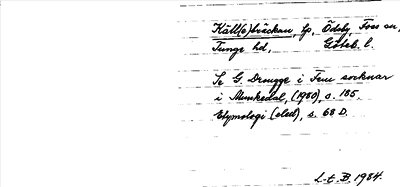 Käll(e)bräckan, lp, Ödsby, Foss sn,
Tunge hd, Göteb. l.
Se G. Drougge i Fem socknar
i Munkedal, (1980), s. 185.
Etymologi (eled), s. 68 D.
L-t. B. 1984.